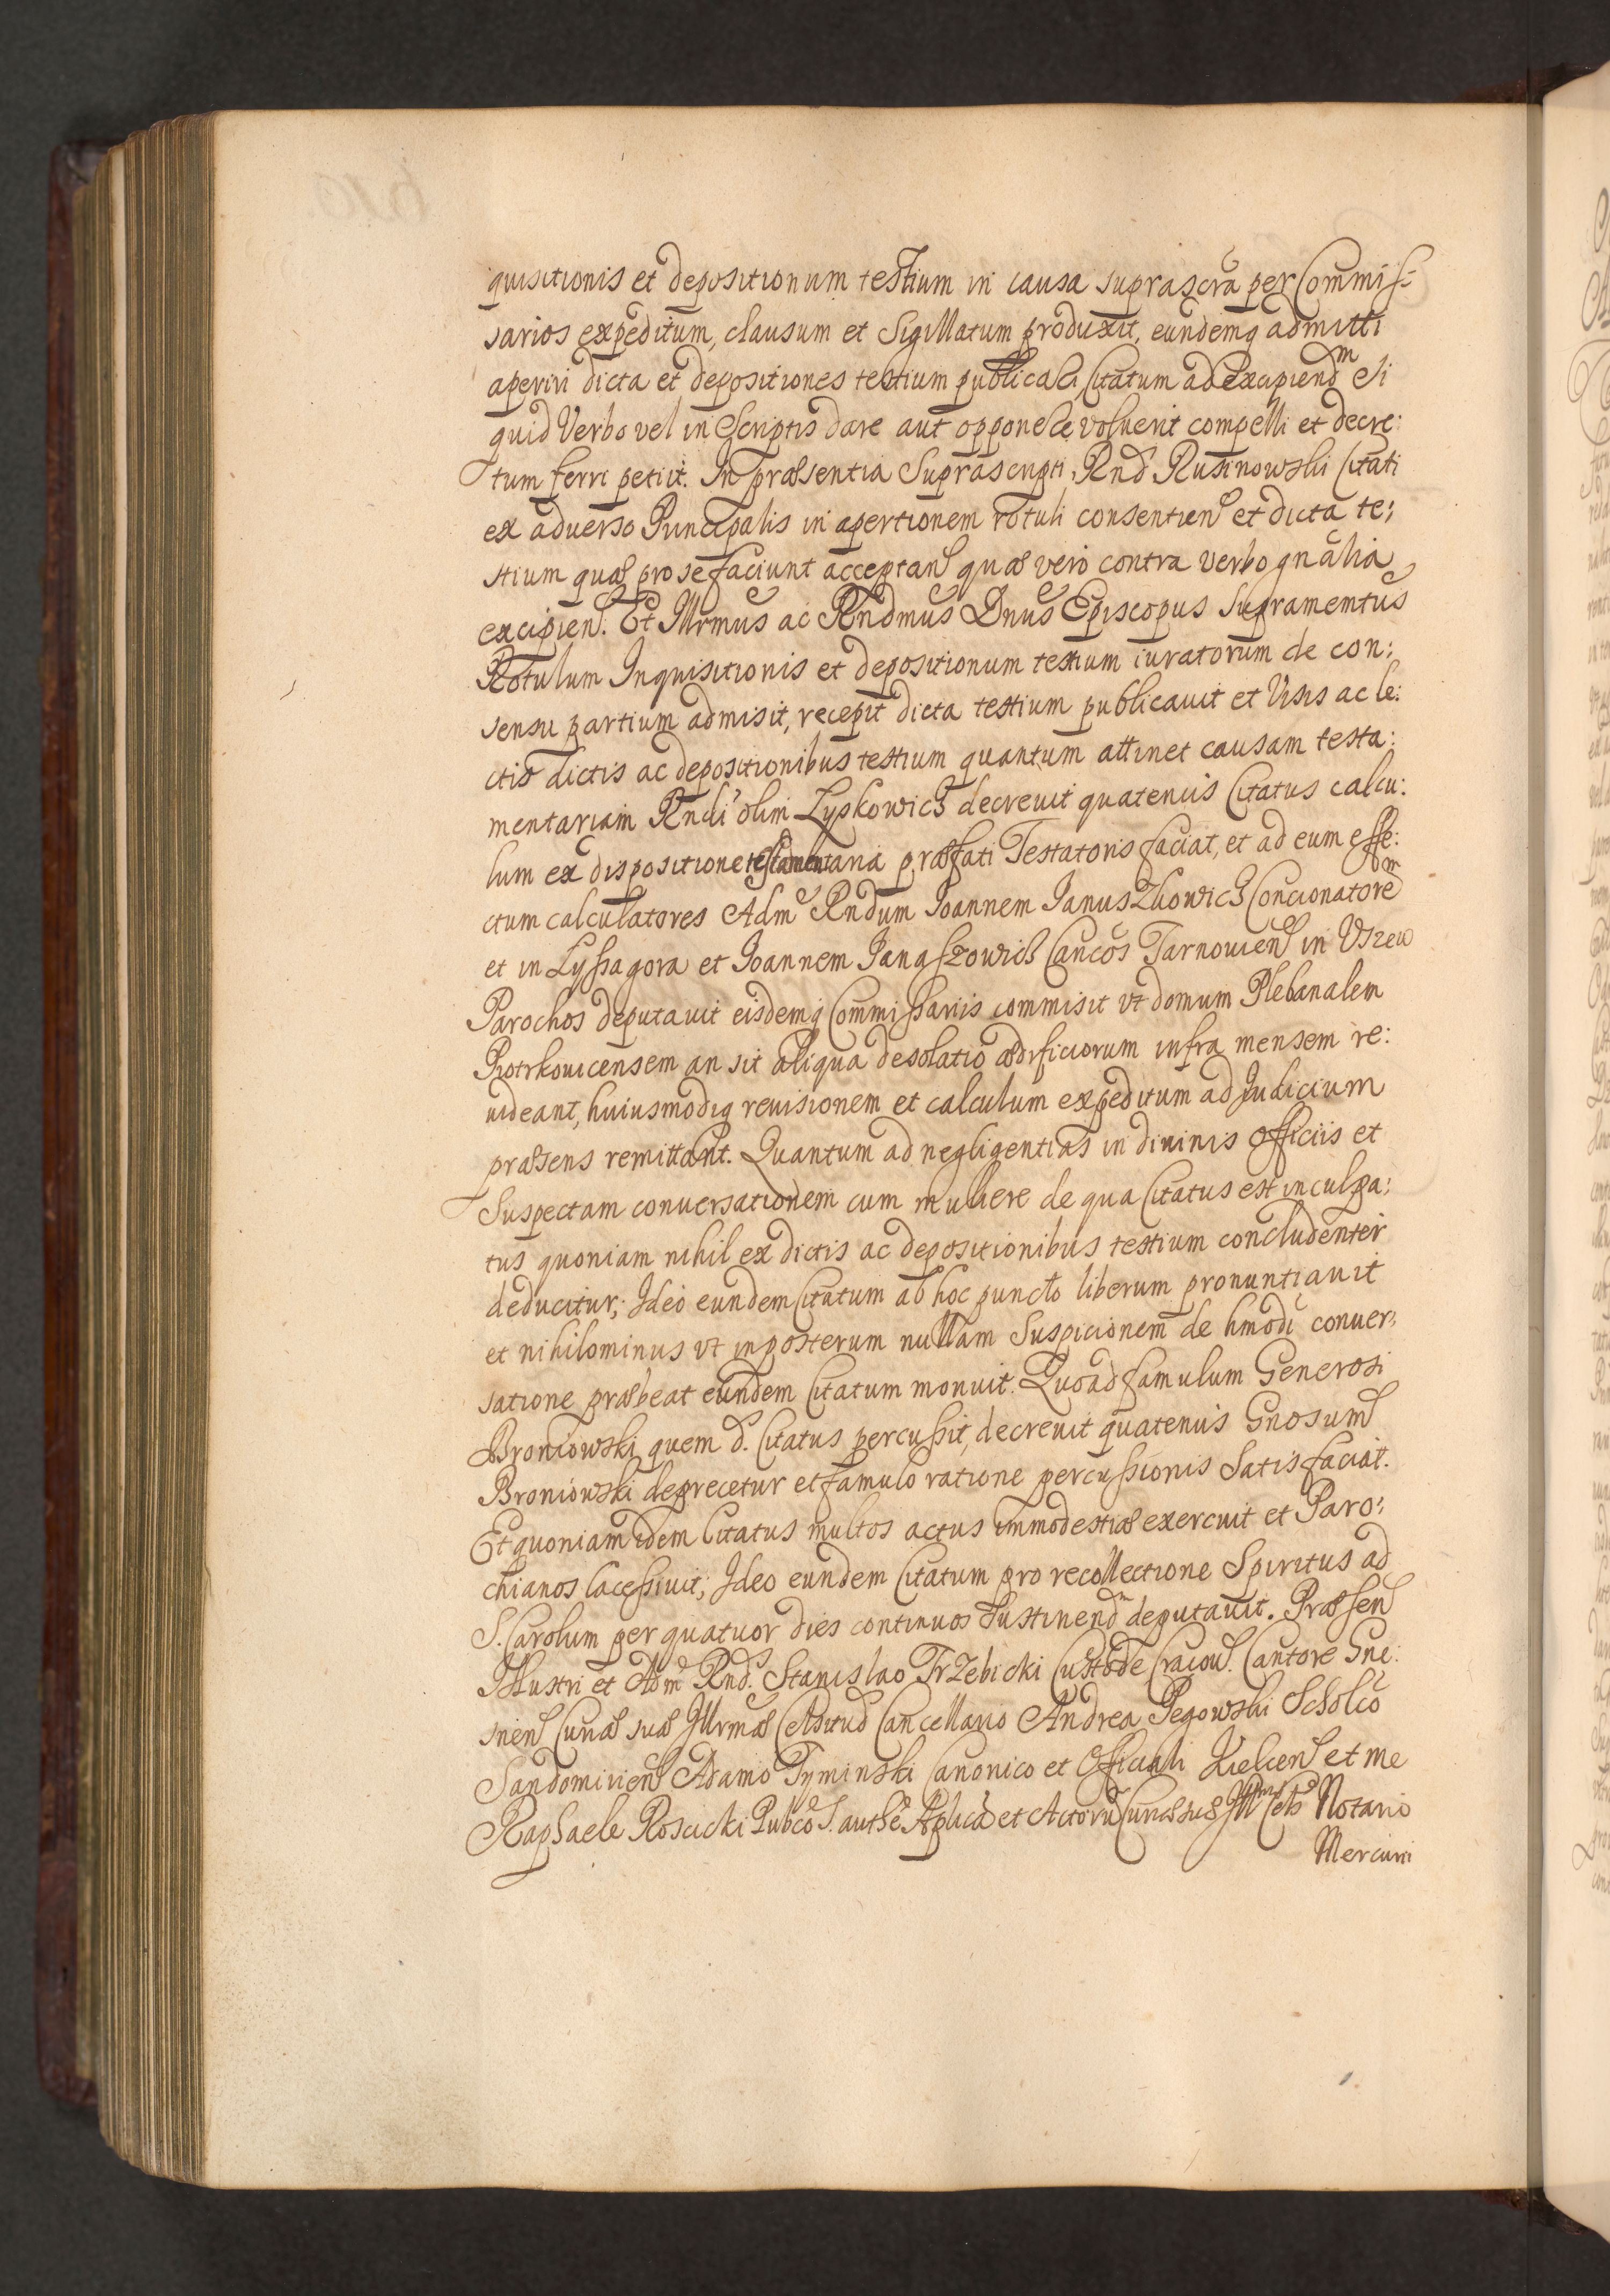 quisitionis et depositionum testium in causa suprascra per Commiss:
sarios expeditum, clausum et Sigillatum produxit, eundemq admitti
aperiri dicta et depositiones testium publicari Citatum ad Excipiendm Si
quid Verbo vel in Scriptis dare aut opponere voluerit compelli et decre:
tum ferri petiit. In præsentia Suprascripti Rnd Rusinowski Citati
ex aduerso Principalis in apertionem rotuli consentien et dicta te:
stium quæ pro se faciunt acceptan quæ vero contra verbo gnalia
excipien. Et Illrmus ac Rndmus Dnus Episcopus supramemtus
Rotulum Inquisitionis et depositionum testium iuratorum de con:
sensu partium admisit, recepit dicta testium publicauit et Visis ac le:
ctis dictis ac depositionibus testium quantum attinet causam testa:
mentariam Rndi olim Lyskowicz decreuit quatenus Citatus calcu:
lum ex dispositione testamentaria præfati Testatoris faciat, et ad eum effe:
ctum calculatores Adm Rndum Ioannem Ianuszkowicz Concionatorem
et in Lyssagora et Ioannem Janaszowicz Cancos Tarnouien in Vszew
Parochos deputauit eisdemq Commissariis commisit vt domum Plebanalem
Piotrkouicensem an sit aliqua desolatio ædificiorum infra mensem re:
uideant, huiusmodiq reuisionem et calculum expeditum ad Judicium
præsens remittant. Quantum ad negligentias in diuinis Officiis et
Suspectam conuersationem cum muliere de qua Citatus est inculpa:
tus quoniam nihil ex dictis ac depositionibus testium concludenter
deducitur; Ideo eundem Citatum ab hoc puncto liberum pronuntiauit
et nihilominus vt inposterum nullam Suspicionem de hmodi conuer:
satione præbeat eundem Citatum monuit. Quoad famulum Generosi
Broniowski quem d. Citatus percussit, decreuit quatenus Gnosum
Broniowski deprecetur et famulo ratione percussionis Satisfaciat.
Et quoniam idem Citatus multos actus immodestiæ exercuit et Paro:
chianos lacessiuit; Ideo eundem Citatum pro recollectione Spiritus ad
S. Carolum per quatuor dies continuos Sustinendm deputauit. Præsen
Illustri et Adm Rnd. Stanislao Trzebicki Custode Cracou. Cantore Gne:
snen Curiæ suæ Illrmæ Celsitud Cancellario Andrea Pegowski Scholco
Sandomirien Adamo Tyminski Canonico et Officiali Kielcen et me
Raphaele Roscicki Pubco S. authe Aplica et Actoru Curiæ suæ Illmæ Cels Notario
Mercurii